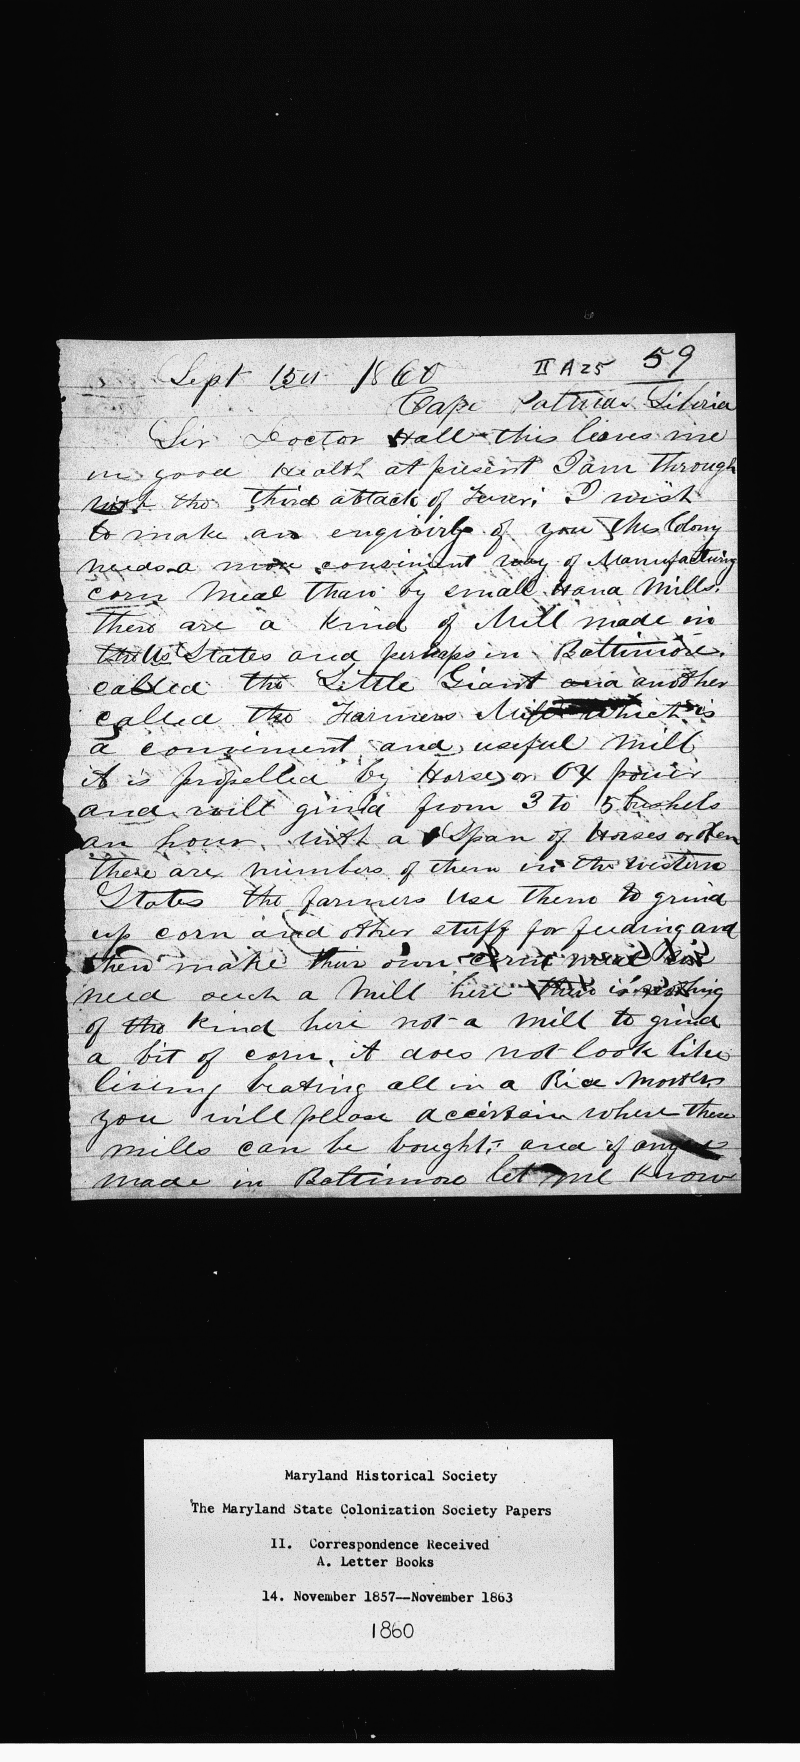 Sept 15th 1860 II A 25 59
Cape Liberia
Sir Doctor Hall this lieves me
in good Health at present I am through
with the third attack of Fever; I wish
to make an of you This Colony
needs a more convinient way of Manufacturing
corn meal than by small Hand Mills.
there are a kind of Mill made in
the U States and perhaps in Baltimore.
called the Little Giant and another
called the Farmers Mill which is
a convinient and useful Mill
it is propelled by Horse or OX power
and will grind from 3 to 5 bushels
an hour. with a Span of Horses or Oxen
there are numbers of them in the western
States the farmers use them to grind
up corn and other stuff for feeding and
then make their own corn meal
need such a Mill here there is nothing
of the kind here not a mill to grind
a bit of corn. it does not look like
living beating all in a Rice Morter
you will please accirtain where these
mills can be bought; and if any
made in Baltimore let me know
Maryland Historical Society
The Maryland State Colonization Society Papers
II. Correspondence Received
A. Letter Books
14. November 1857--November 1863
1860